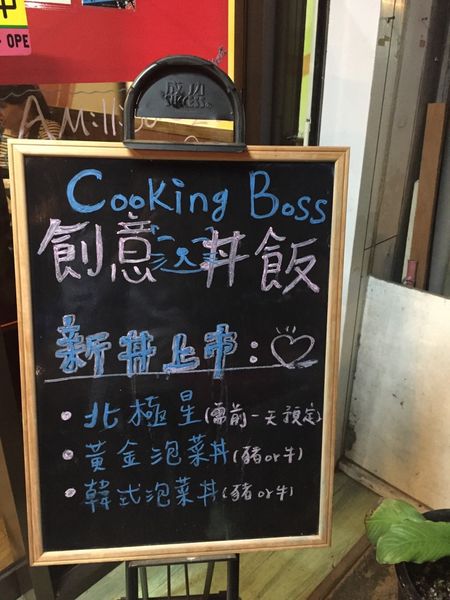 中
- OPE
成功
SUCCESS
A Million
Cooking Boss
創意 丼飯
新丼上市:♡
• 北極星(需前一天預定)
• 黃金泡菜丼(豬or牛)
• 韓式泡菜丼(豬or牛)